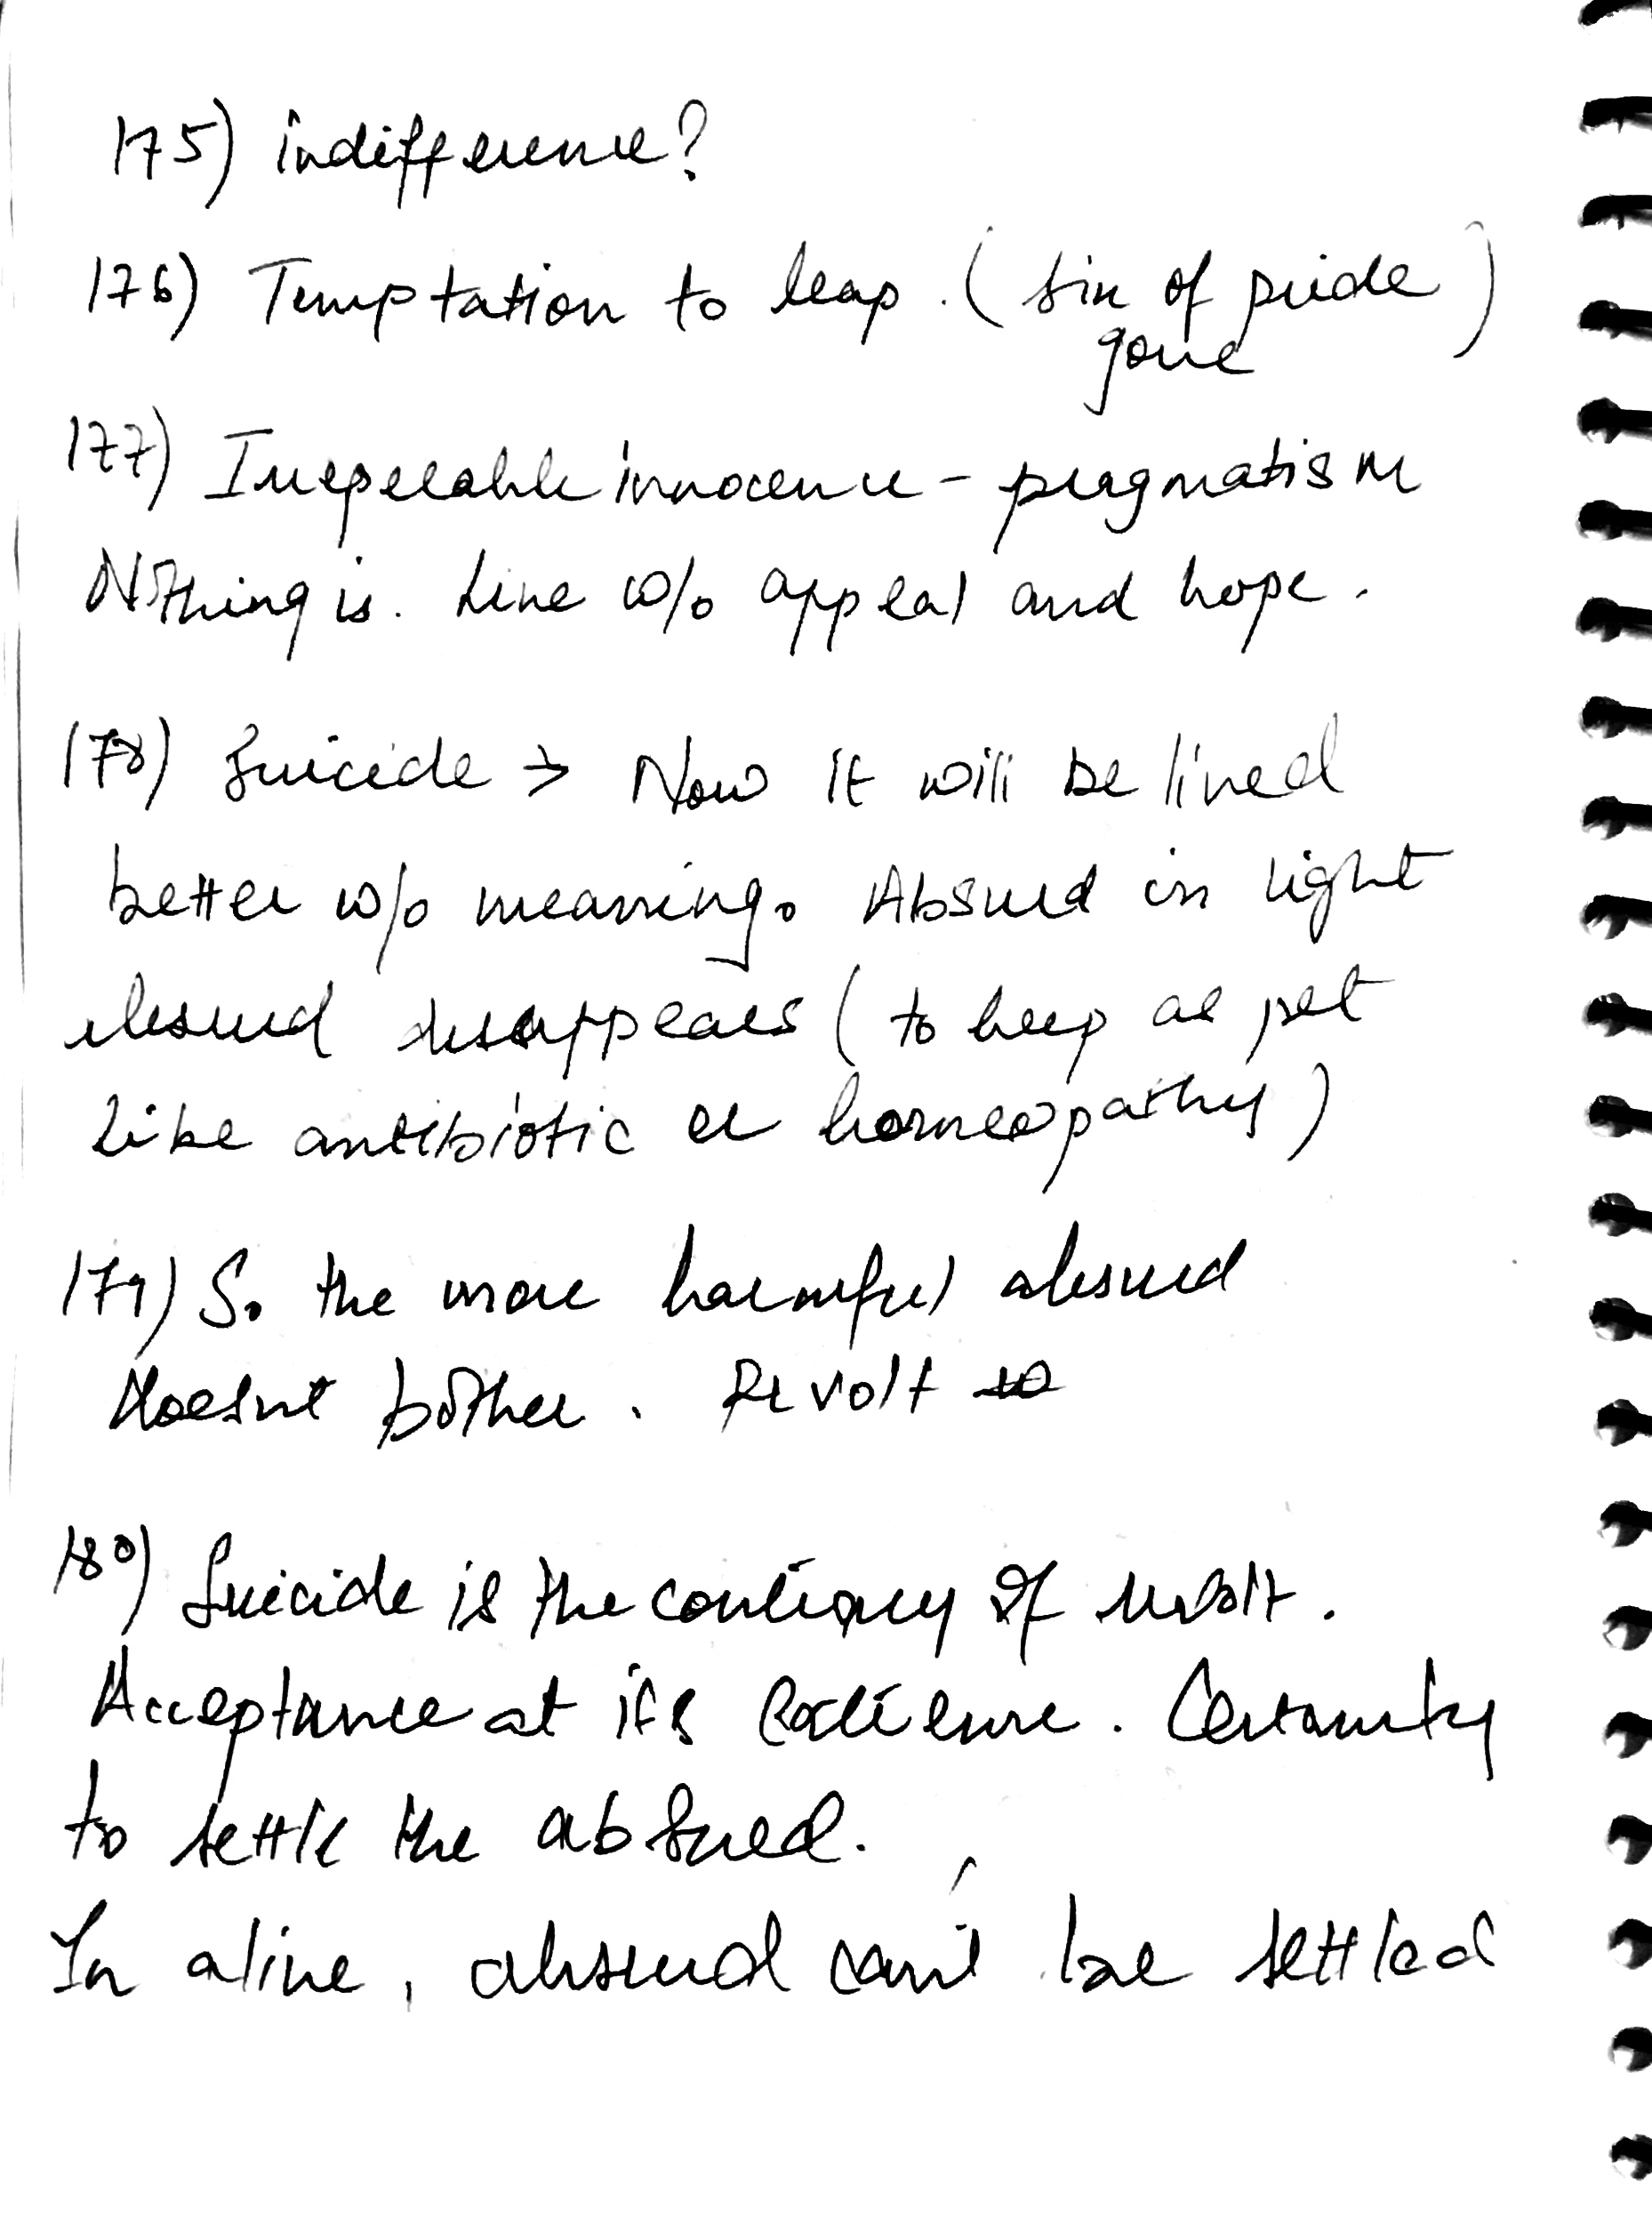 175) indifference?
176) Temptation to leap. (sin of pride)
gone
177) Irreperable innocence - pragmatism
Nothing is. Live w/o appeal and hope.
178) Suicide → Now it will be lived
better w/o meaning. Absurd in light
absurd disappears (to keep as pet
like antibiotic or homeopathy)
179) So the more harmful absurd
doesnt bother. Revolt
180) Suicide is the contrary of revolt.
Acceptance at its extreme. Certainty
to settle the absurd.
In alive, absurd can't be settled